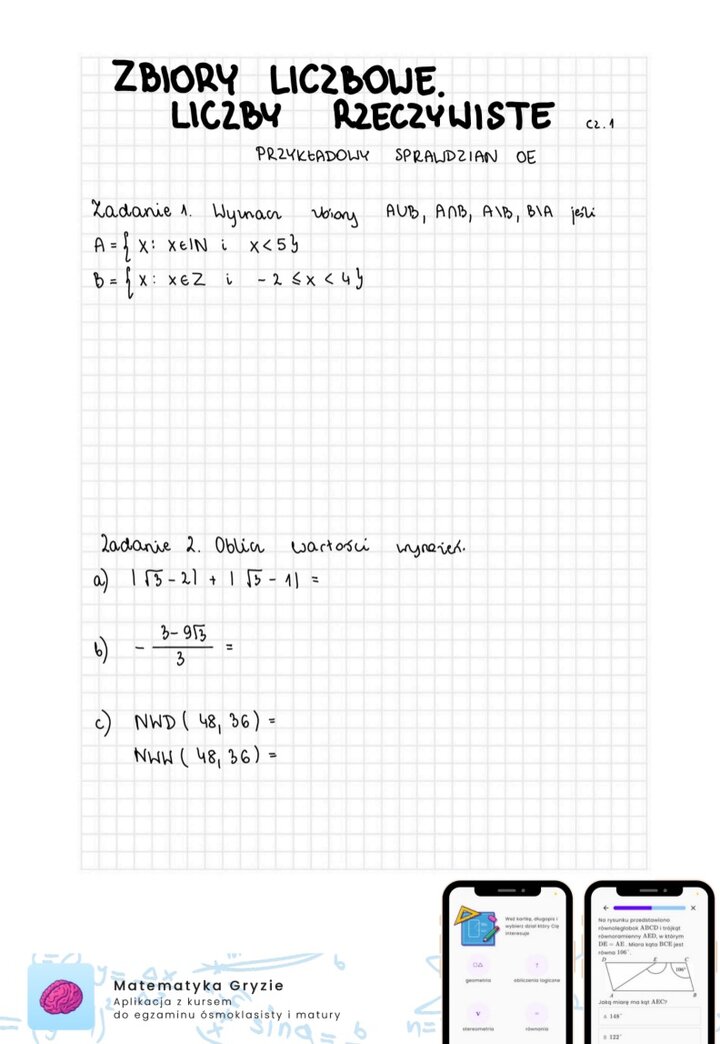 ZBIORY LICZBOWE.
LICZBY RZECZYWISTE cz.1
PRZYKŁADOWY SPRAWDZIAN OE
Zadanie 1. Wyznacz zbiory A∪B, A∩B, A\B, B\A jeśli
A = { x: x∈ℕ i x<5}
B = { x: x∈Z i -2 ≤ x < 4}
Zadanie 2. Oblicz wartości wyrażeń.
a) |√3 - 2| + |√3 - 1| =
b) - \frac{3-9√3}{3} =
c) NWD ( 48, 36) =
NWW ( 48, 36) =
Matematyka Gryzie
Aplikacja z kursem
do egzaminu ósmoklasisty i matury
Weź kartkę, długopis i
wybierz dział który Cię
interesuje
geometria
obliczenia logiczne
stereometria
równania
Na rysunku przedstawiono
równoległobok ABCD i trójkąt
równoramienny AED, w którym
DE = AE. Miara kąta BCE jest
równa 106°.
D E C
106°
A B
Jaką miarę ma kąt AEC?
A 148°
B 122°